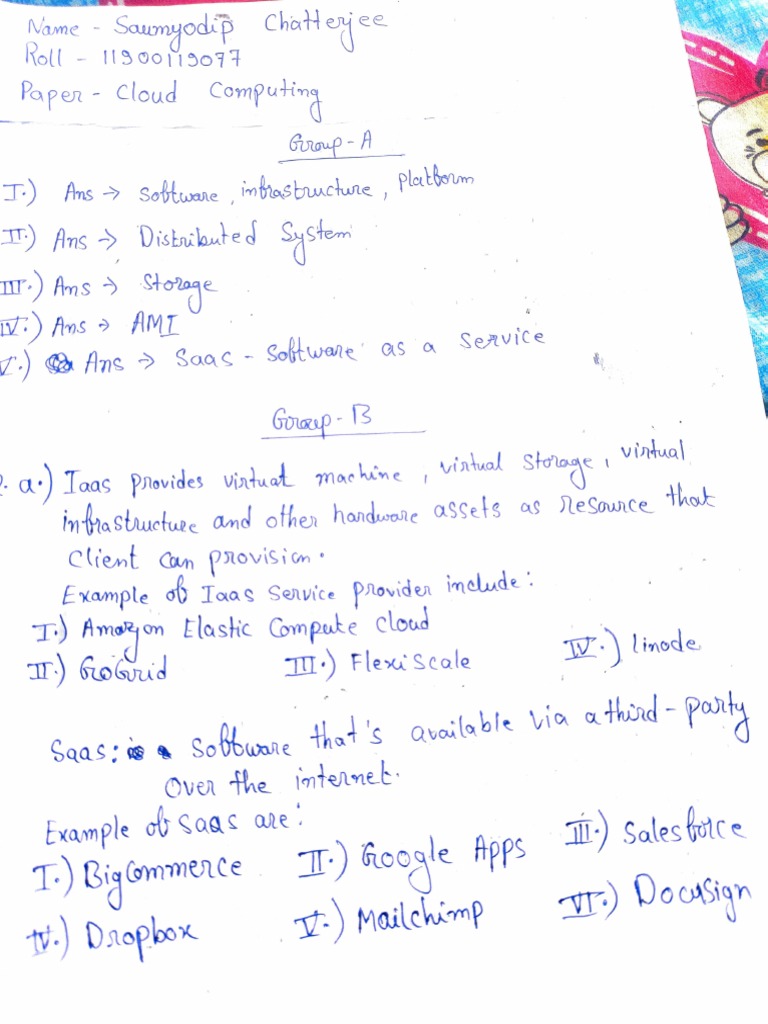 Name - Saumyodip Chatterjee
Roll - 11900119077
Paper - Cloud Computing
Group - A
I.) Ans → Software, infrastructure, Platform
II.) Ans → Distributed System
III.) Ans → Storage
IV.) Ans → AMI
V.) Ans → Saas - Software as a Service
Group - B
2. a.) Iaas provides virtual machine, virtual storage, virtual
infrastructure and other hardware assets as resource that
Client can provision.
Example of Iaas Service provider include:
I.) Amazon Elastic Compute Cloud
II.) GoGrid III.) Flexiscale IV.) linode
Saas: Software that's available via a third-party
Over the internet.
Example of saas are:
I.) BigCommerce II.) Google Apps III.) Salesforce
IV.) Dropbox V.) Mailchimp VI.) Docusign